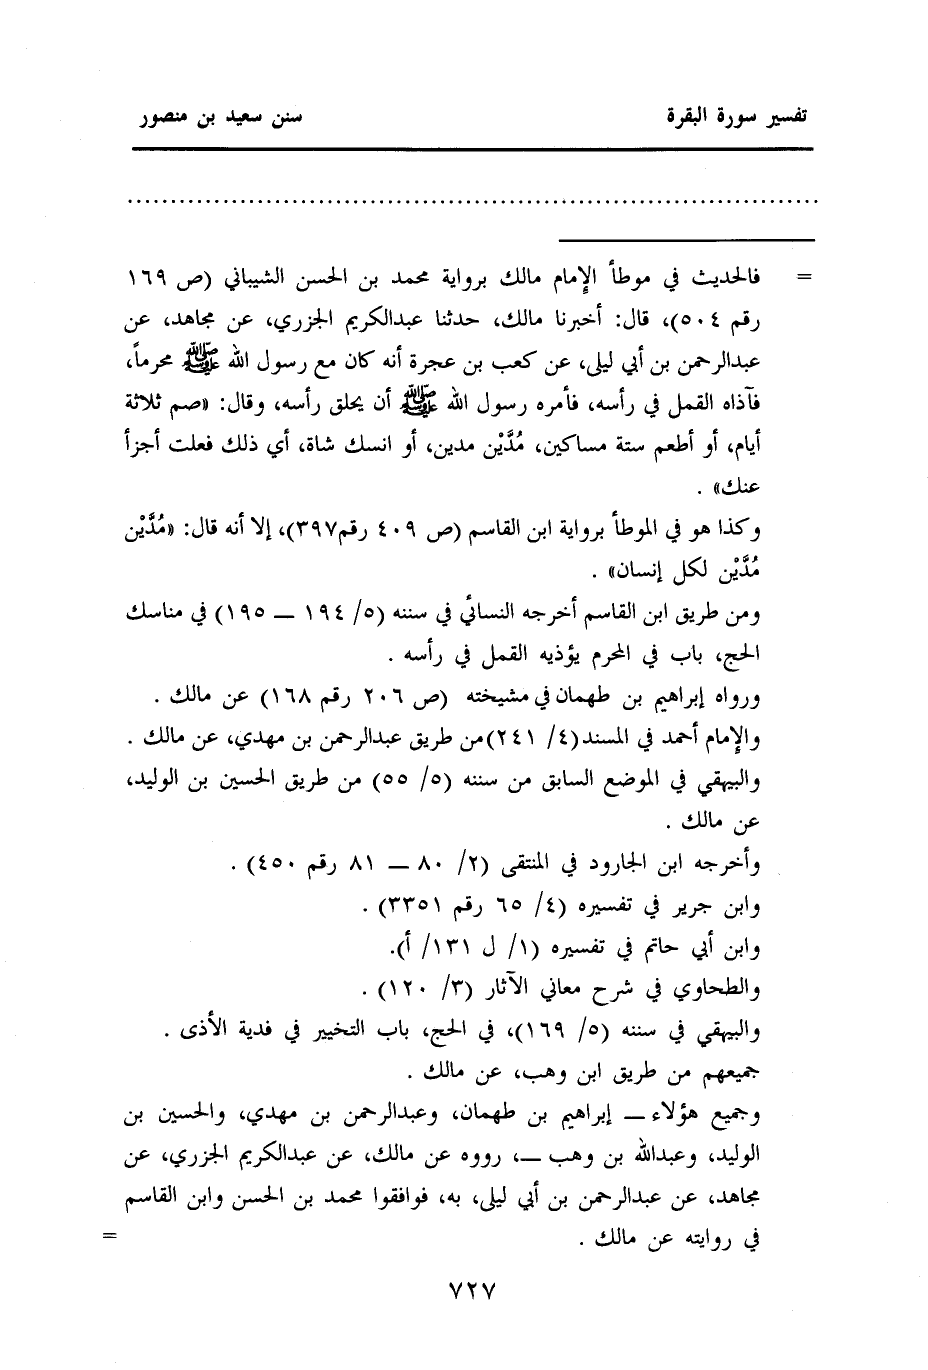 تفسير سورة البقرة سنن سعيد بن منصور
................................................................................
= فالحديث في موطأ الإمام مالك برواية محمد بن الحسن الشيباني (ص ١٦٩
رقم ٥٠٤)، قال: أخبرنا مالك، حدثنا عبدالكريم الجزري، عن مجاهد، عن
عبدالرحمن بن أبي ليلى، عن كعب بن عجرة أنه كان مع رسول الله ﷺ محرماً،
فآذاه القمل في رأسه، فأمره رسول الله ﷺ أن يحلق رأسه، وقال: «صم ثلاثة
أيام، أو أطعم ستة مساكين، مُدَّيْن مدين، أو انسك شاة، أي ذلك فعلت أجزأ
عنك» .
وكذا هو في الموطأ برواية ابن القاسم (ص ٤٠٩ رقم٣٩٧)، إلا أنه قال: «مُدَّيْن
مُدَّيْن لكل إنسان» .
ومن طريق ابن القاسم أخرجه النسائي في سننه (٥/ ١٩٤ ــ ١٩٥) في مناسك
الحج، باب في المحرم يؤذيه القمل في رأسه .
ورواه إبراهيم بن طهمان في مشيخته (ص ٢٠٦ رقم ١٦٨) عن مالك .
والإمام أحمد في المسند(٤/ ٢٤١)من طريق عبدالرحمن بن مهدي، عن مالك .
والبيهقي في الموضع السابق من سننه (٥/ ٥٥) من طريق الحسين بن الوليد،
عن مالك .
وأخرجه ابن الجارود في المنتقى (٢/ ٨٠ ــ ٨١ رقم ٤٥٠) .
وابن جرير في تفسيره (٤/ ٦٥ رقم ٣٣٥١) .
وابن أبي حاتم في تفسيره (١/ ل ١٣١/ أ).
والطحاوي في شرح معاني الآثار (٣/ ١٢٠) .
والبيهقي في سننه (٥/ ١٦٩)، في الحج، باب التخيير في فدية الأذى .
جميعهم من طريق ابن وهب، عن مالك .
وجميع هؤلاء ــ إبراهيم بن طهمان، وعبدالرحمن بن مهدي، والحسين بن
الوليد، وعبدالله بن وهب ــ، رووه عن مالك، عن عبدالكريم الجزري، عن
مجاهد، عن عبدالرحمن بن أبي ليلى، به، فوافقوا محمد بن الحسن وابن القاسم
في روايته عن مالك . =
٧٢٧